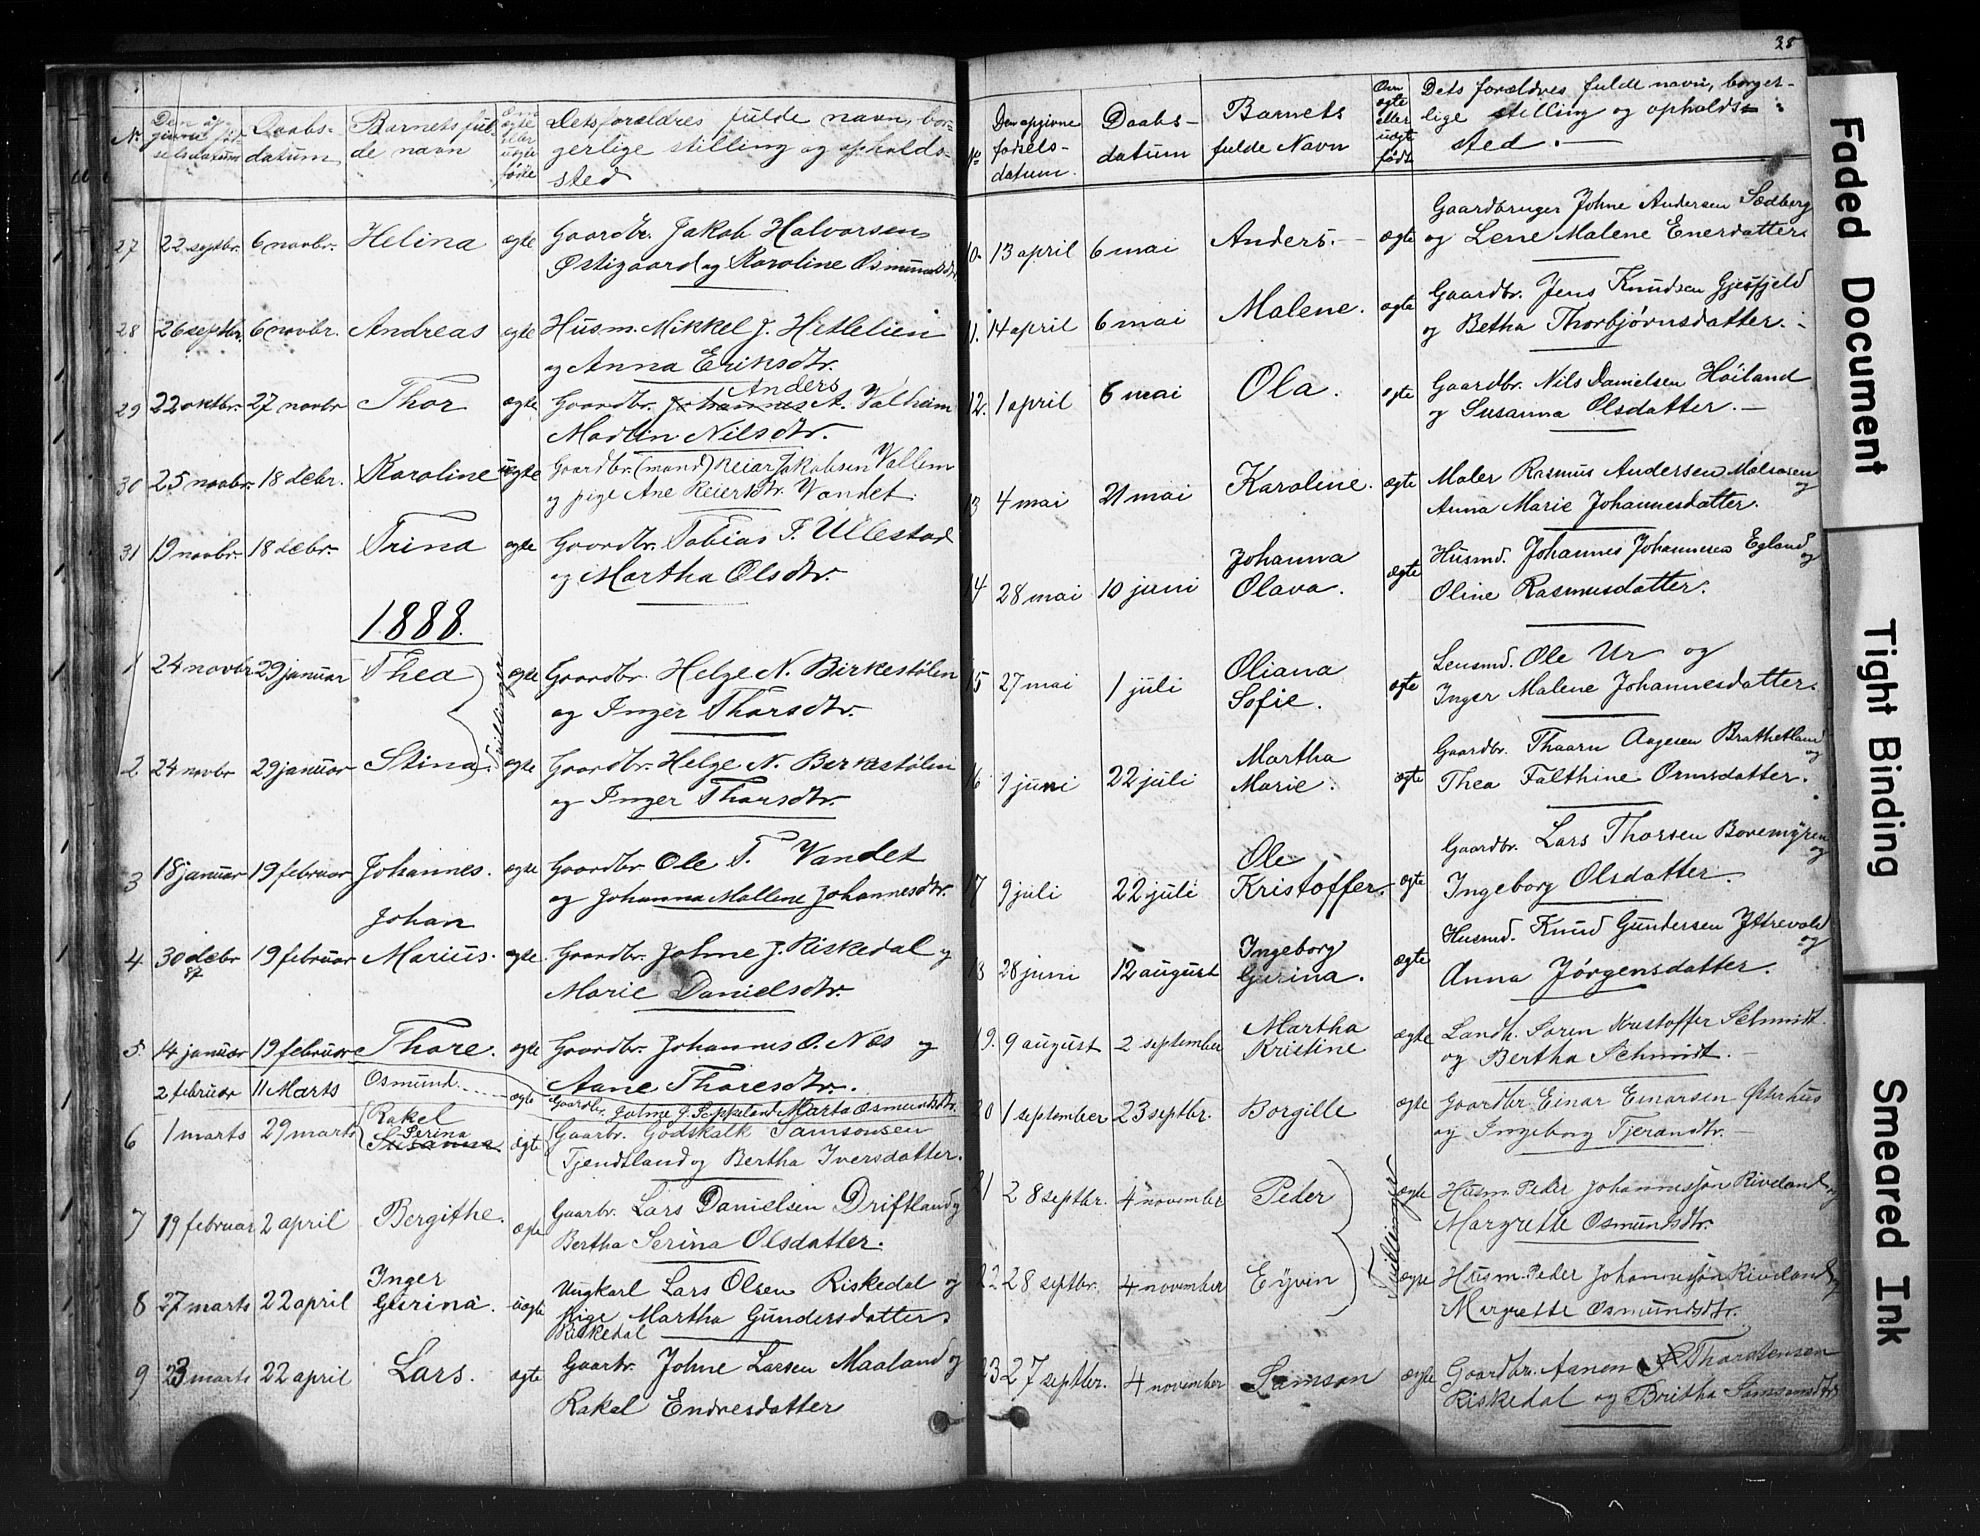 38
No. Den opgivne fødselsdatum Daabsdatum Barnets fulde navn Om ægte eller uægte født Dets forældres fulde navn, borgerlige stilling og opholdssted
27 22 septbr. 6 novbr. Helina ægte Gaardbr. Jakob Halvorsen
Østigaard og Karoline Osmundsdtr.
28 26 septbr. 6 novbr. Andreas ægte Husm. Mikkel J. Hetlelien
og Anna Eriksdtr.
Anders
29 22 oktbr. 27 novbr Thor ægte Gaardbr. Johannes A. Valheim
Martin Nilsdtr.
30 25 novbr. 18 debr. Karoline uægte Gaardbr. (mand) Reiar Jakobsen Vallem
og pige Ane Reiersdtr. Vandet.
31 19 novbr. 18 debr. Trina ægte Gaardbr. Tobias T. Ullestad
og Martha Olsdtr.
1888.
1 24 novbr 29 januar Thea ægte Gaardbr. Helge N. Birkestølen
og Inger Thorsdtr.
Tvillinger
2 24 novbr 29 januar Stina. ægte Gaardbr. Helge N. Birkestølen
og Inger Thorsdtr.
3 18 januar 19 februar Johannes. ægte Gaardbr. Ole T. Vandet
og Johanna Mallene Johannesdtr.
Johan
4 30 debr 87 19 februar Marius. ægte Gaardbr. Johne J. Riskedal og
Marie Danielsdtr.
5. 14 januar 19 februar Thore. ægte Gaardbr. Johannes O. Næs og
Aane Thoresdtr.
2 februar 11 Marts Osmund ægte Gaardbr. Johne J. Marta Osmundsdtr.
Rakel
6 1 marts 29 marts Serina Susanne ægte Gaarbr. Godskalk Samsonsen
Tjendtland og Bertha Iversdatter.
7 19 februar 2 april Bergithe. ægte Gaarbr. Lars Danielsen Driftland og
Bertha Serina Olsdatter.
Inger
8 27 marts 22 april Gurina. uægte Ungkarl Lars Olsen Riskedal og
Pige Martha Gundersdatter
Riskedal
9 23 marts 22 april Lars. ægte Gaarbr. Johne Larsen Maaland og
Rakel Endresdatter
No Den opgivne fødselsdatum. Daabsdatum Barnets fulde Navn Om ægte eller uægte født Dets forældres fulde navn, borgerlige stilling og opholdssted.
10. 13 april 6 mai Anders. ægte Gaardbruger Johne Andersen Sædberg
og Lene Malene Enersdatter.
11. 14 april 6 mai Malene. ægte Gaardbr. Jens Knudsen Gjesfjeld
og Betha Thorbjørnsdatter.
12. 1 april 6 mai Ola. ægte Gaardbr. Nils Danielsen Høiland
og Susanna Olsdatter.
13 4 mai 21 mai Karoline. ægte Maler Rasmus Andersen og
Anna Marie Johannesdatter.
14 28 mai 10 juni Johanna Olava. ægte Husmd. Johannes Johannesen Egland og
Oline Rasmusdatter.
15 27 mai 1 juli Oliana Sofie. ægte Lensmd. Ole Ur og
Inger Malene Johannesdatter.
16 1 juni 22 juli Martha Marie. ægte Gaardbr. Thaarn Aagesen Brathetland og
Thea Falthine Ormsdatter.
17 9 juli 22 juli Ole Kristoffer. ægte Gaardbr. Lars Thorsen Bovemyren og
Ingeborg Olsdatter.
18 28 juni 12 august Ingeborg Gurina. ægte Husmd. Knud Gundersen Ytrevold og
Anna Jørgensdatter.
19. 9 august 2 september Martha Kristine ægte Landh. Søren Kristoffer Schmidt
og Bertha Schmidt.
20 1 september 23 septbr. Borgille ægte Gaardbr. Einar Einarsen Østerhus
og Ingeborg Tjerandtr.
21 28 septbr. 4 november Peder ægte Husm. Peder Johannesson Riveland og
Margrette Osmundsdtr.
Tvillinger
22 28 septbr. 4 november Eyvin ægte Husm. Peder Johannesson Riveland og
Margrette Osmundsdtr.
23 27 septbr. 4 november Samson ægte Gaardbr. Aanen Tharaldsensen
Riskedal og Britha Samsonsdtr
Faded Document
Tight Binding
Smeared Ink